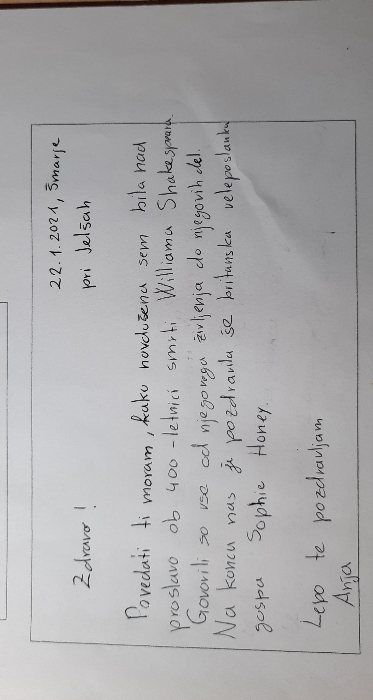 22.1.2021, Šmarje
pri Jelšah
Zdravo!
Povedati ti moram, kako navdušena sem bila nad
proslavo ob 400-letnici smrti Williama Shakespeara.
Govorili so vse od njegovega življenja do njegovih del.
Na koncu nas je pozdravila še britanska veleposlanka
gospa Sophie Honey.
Lepo te pozdravljam
Anja